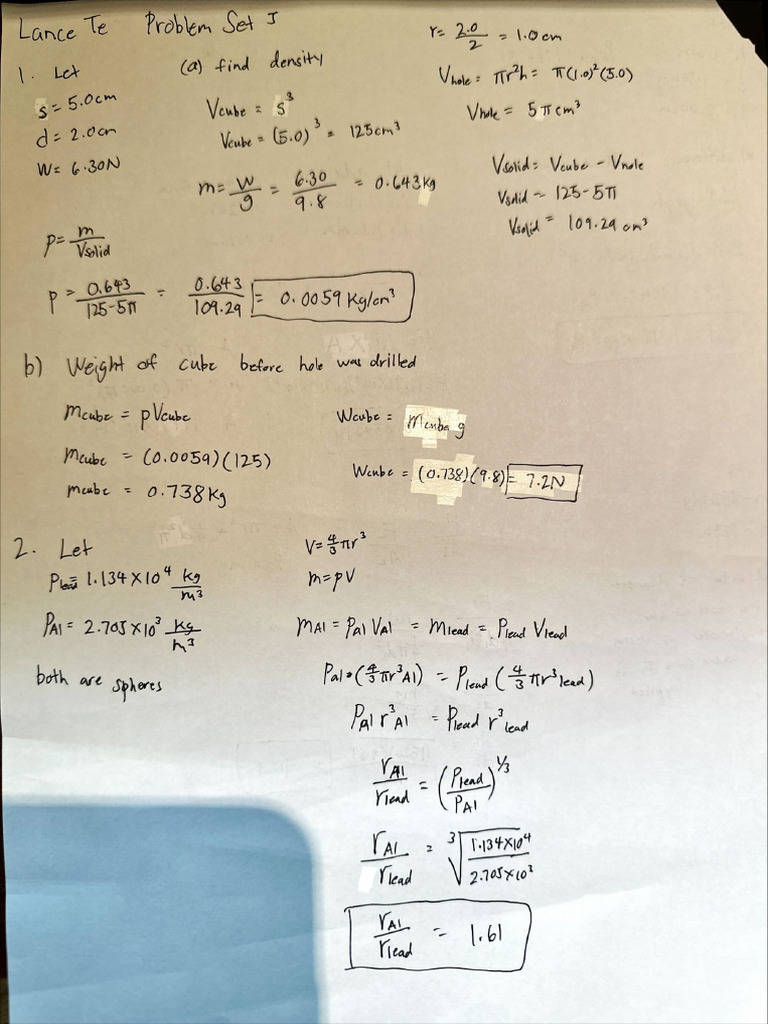 Lance Te Problem Set I
1. Let
s = 5.0cm
d = 2.0cm
W = 6.30N
(a) find density
Vcube = s³
Vcube = (5.0)³ = 125cm³
m = W/g = 6.30/9.8 = 0.643kg
r = 2.0/2 = 1.0cm
Vhole = πr²h = π(1.0)²(5.0)
Vhole = 5πcm³
Vsolid = Vcube - Vhole
Vsolid = 125-5π
Vsolid = 109.29 cm³
p = m/Vsolid
p = 0.643/125-5π = 0.643/109.29 = 0.0059 Kg/cm³
b) Weight of cube before hole was drilled
mcube = pVcube
mcube = (0.0059)(125)
mcube = 0.738Kg
Wcube = mcube g
Wcube = (0.738)(9.8) = 7.2N
2. Let
Plead = 1.134×10⁴ kg/m³
PAl = 2.705×10³ kg/m³
both are spheres
V = 4/3 πr³
m = pV
mAl = PAl VAl = mlead = Plead Vlead
Pal•(4/3 πr³Al) = Plead (4/3 πr³lead)
PAl r³Al = Plead r³lead
rAl/rlead = (Plead/PAl)^1/3
rAl/rlead = ³√1.134×10⁴/2.705×10³
rAl/rlead = 1.61